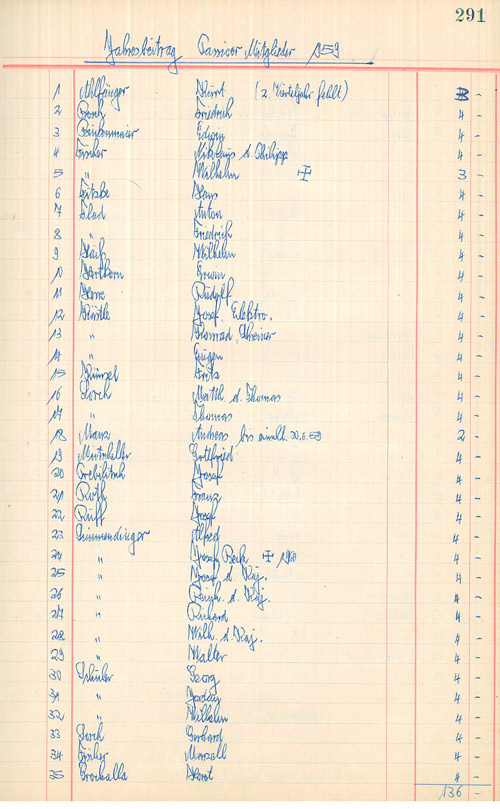 291
Jahresbeitrag Passiver Mitglieder 1959
1 Kurt (2. Vierteljahr fehlt) 3 -
2 Friedrich 4 -
3 Edwin 4 -
4 Fischer Nikolaus d. Philipp 4 -
5 " Wilhelm 3 -
6 Fitzke Hans 4 -
7 Glad Anton 4 -
8 " Friedrich 4 -
9 Wilhelm 4 -
10 Erwin 4 -
11 Rudolf 4 -
12 Hirtle Josef, Elektro. 4 -
13 " Konrad, Schreiner 4 -
14 " Eugen 4 -
15 Künzel Fritz 4 -
16 Lorch Math. d. Thomas 4 -
17 " Thomas 4 -
18 Manz Andreas bis 30.6.59 2 -
19 Gottfried 4 -
20 Josef 4 -
21 Roth Franz 4 -
22 Ruff Josef 4 -
23 Simmendinger Alfred 4 -
24 " Josef, Beck 4 -
25 " Josef d. Kaj. 4 -
26 " d. Kaj. 4 -
27 " Richard 4 -
28 " Wilh. d. Kaj. 4 -
29 " Walter 4 -
30 Schuler Georg 4 -
31 " 4 -
32 " Wilhelm 4 -
33 Gerhard 4 -
34 Fischer Marzell 4 -
35 Prochalla Horst 4 -
136 -